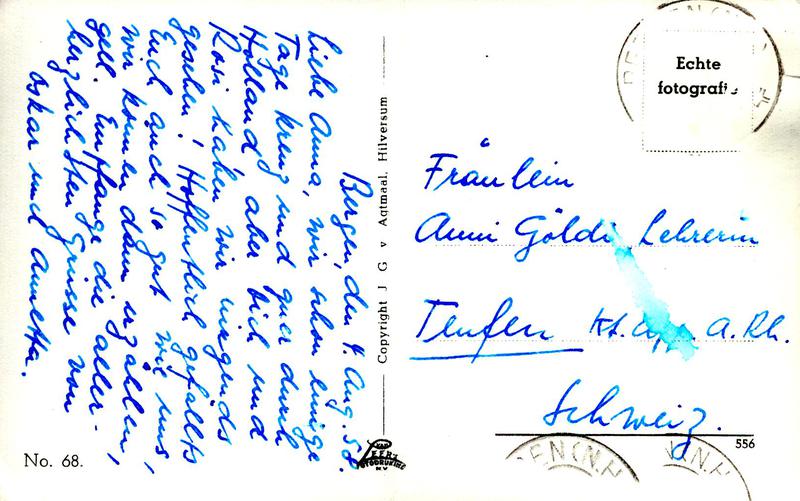 Bergen, den 4. Aug. 58.
Liebe Anna, wir schon einige
Tage kreuz und quer durch
Holland, aber Dich und
Rosi haben wir nirgends
gesehen! Hoffentlich gefällts
Euch auch so gut wie uns,
wir können dann erzählen,
gell. Empfange die aller-
herzlichsten Grüsse von
Oskar und Annetta.
Copyright J G v Agtmaal, Hilversum
No. 68.
VAN
LEER'S
FOTODRUKINE
N.V.
Echte
fotografie
Fräulein
Anni Göldi Lehrerin
Teufen Kt. App. A. Rh.
Schweiz.
556